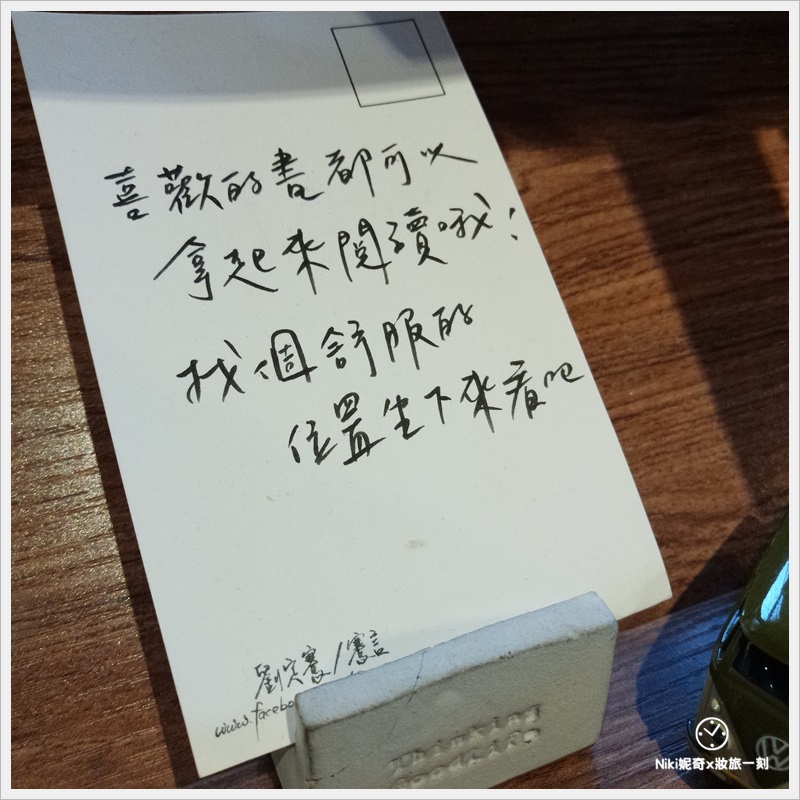 喜歡的書都可以
拿起來閱讀哦!
找個舒服的
位置坐下來看吧
www.facebo
Thinking
Niki妮奇x妝旅一刻